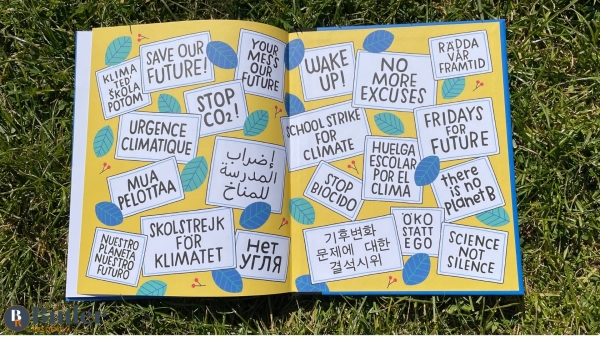 KLIMA
TEĎ
ŠKOLA
POTOM
SAVE OUR
FUTURE!
YOUR
MESS
OUR
FUTURE
STOP
CO₂!
URGENCE
CLIMATIQUE
MUA
PELOTTAA
إضراب
المدرسة
للمناخ
NUESTRO
PLANETA
NUESTRO
FUTURO
SKOLSTREJK
FÖR
KLIMATET
НЕТ
УГЛЯ
WAKE
UP!
NO
MORE
EXCUSES
RÄDDA
VÅR
FRAMTID
SCHOOL STRIKE
FOR
CLIMATE
FRIDAYS
FOR
FUTURE
HUELGA
ESCOLAR
POR EL
CLIMA
STOP
BIOCIDO
there
is no
PLANET B
기후변화
문제에 대한
결석시위
ÖKO
STATT
EGO
SCIENCE
NOT
SILENCE